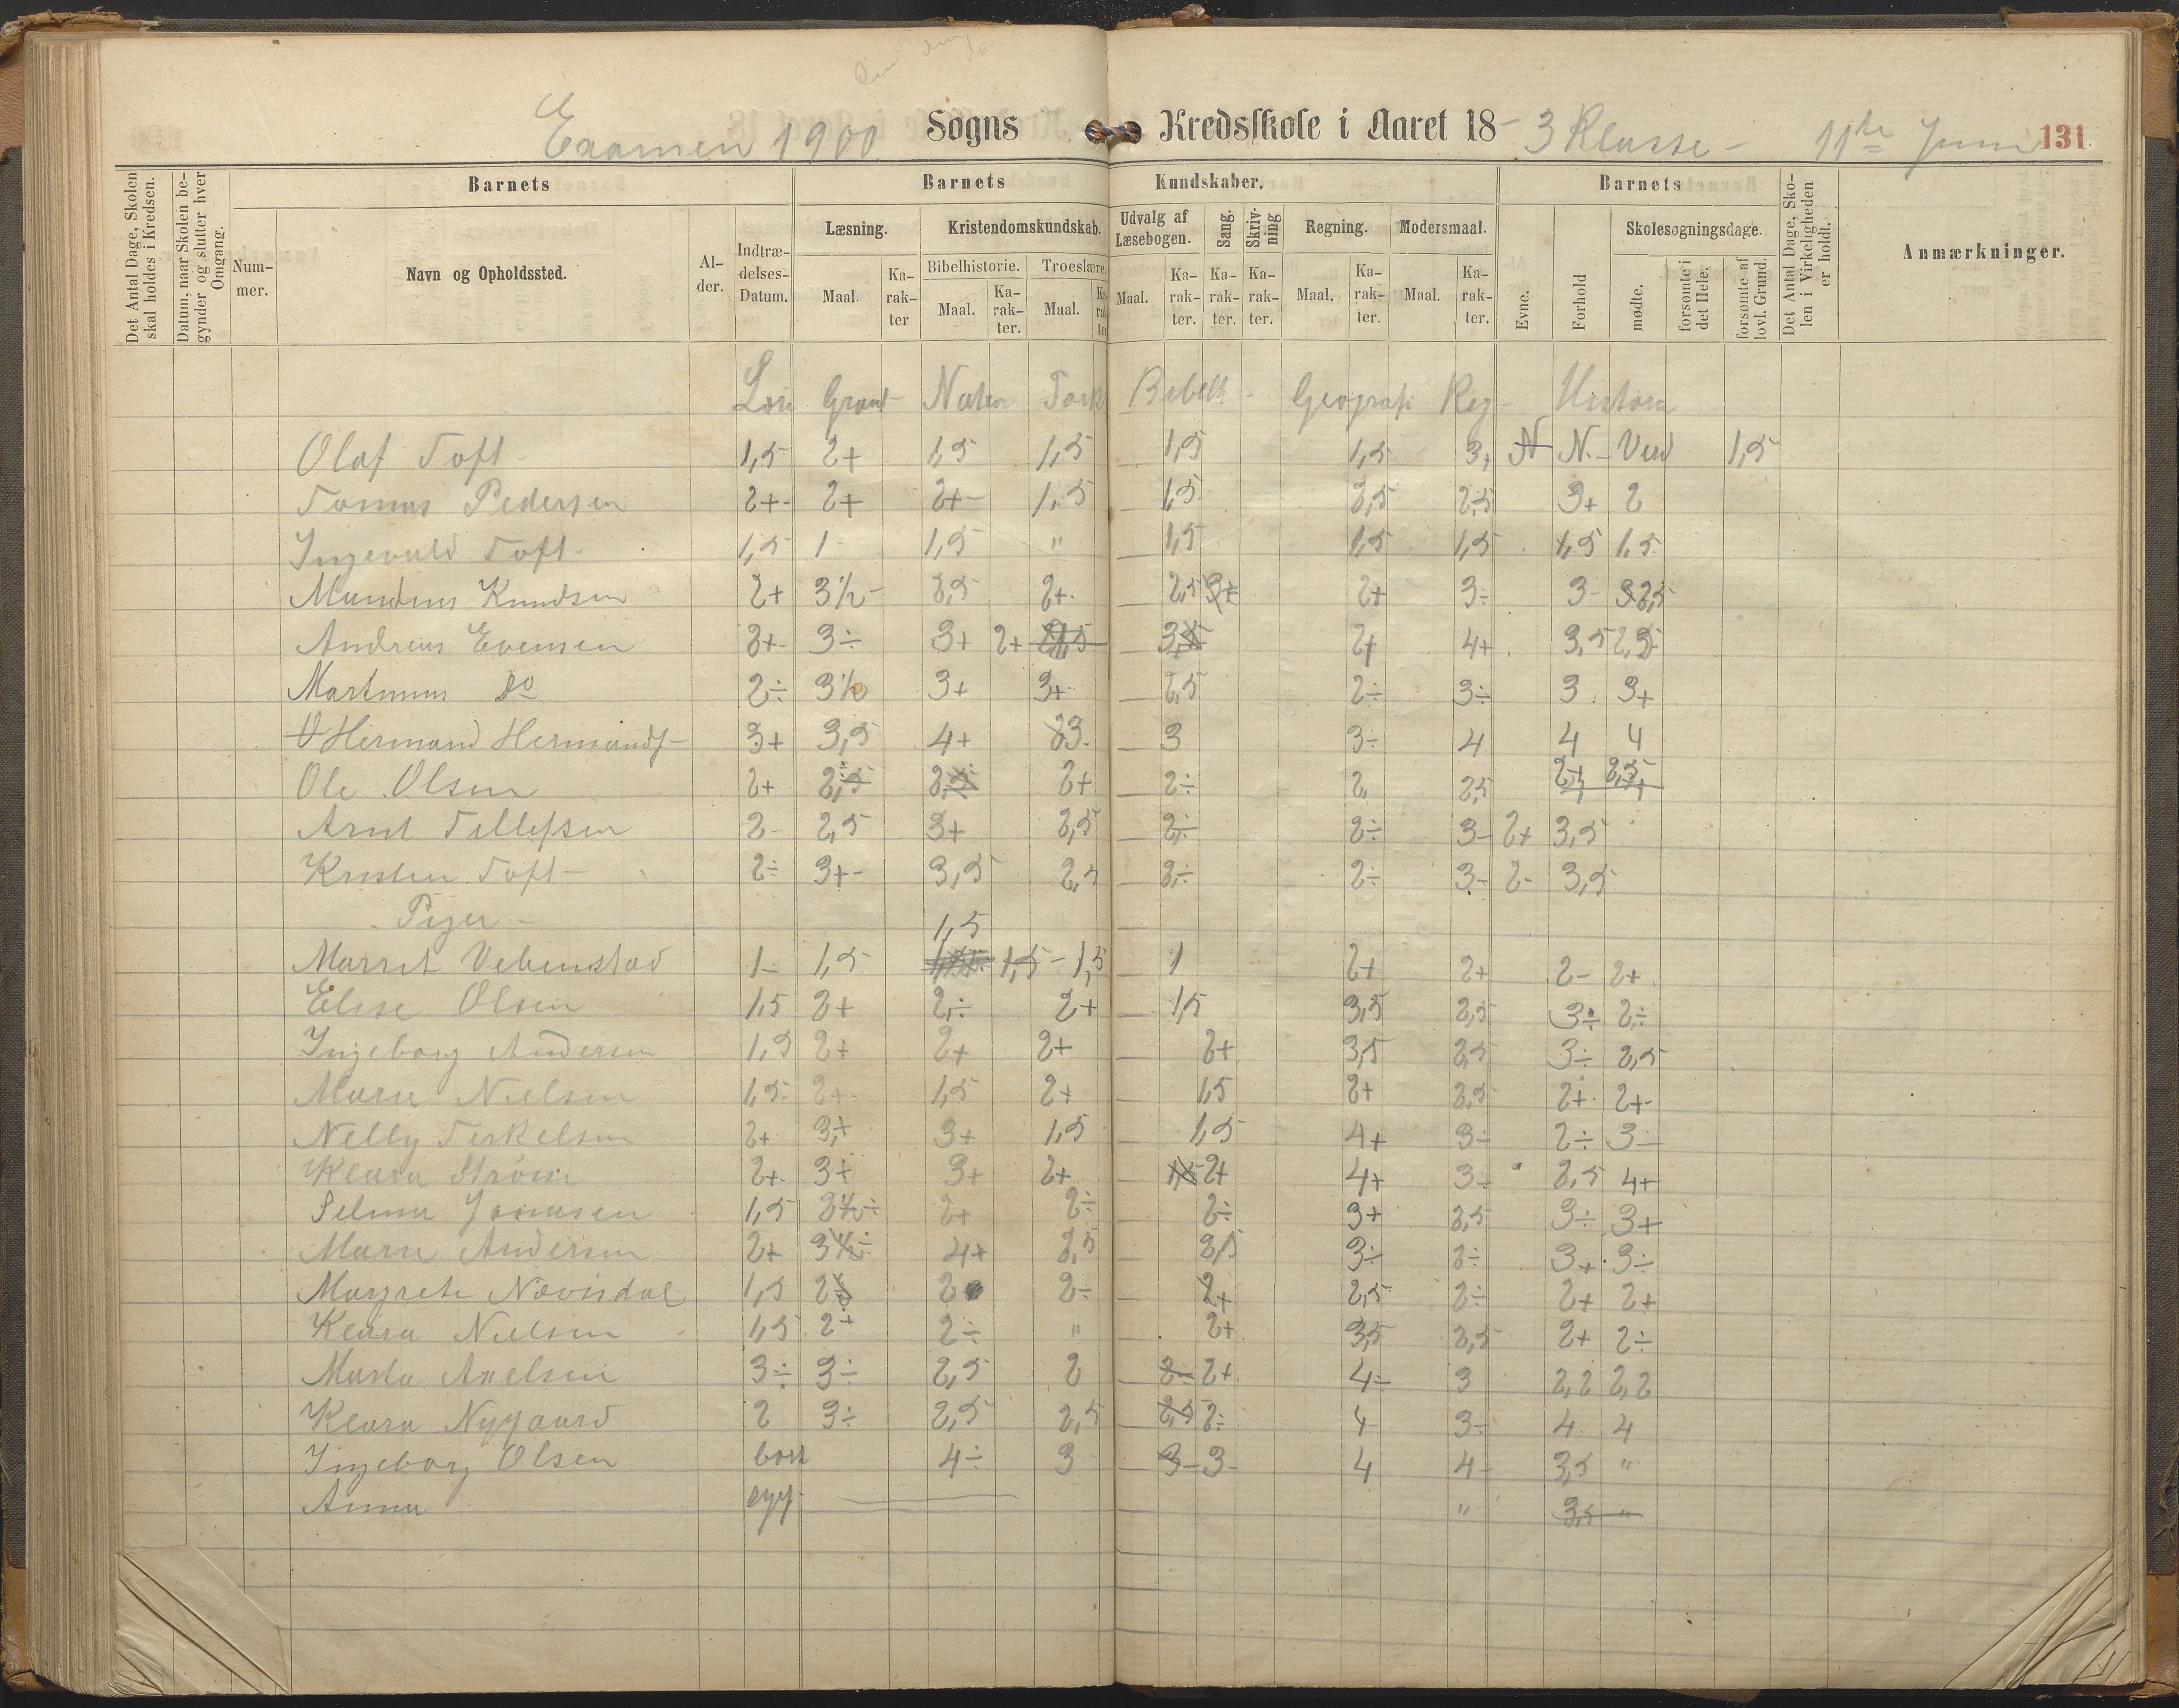 Examen 1900 Sogns Kredsskole i Aaret 18- 3 Klasse - 11te Juni 131
Det Antal Dage, Skolen skal holdes i Kredsen.
Datum, naar Skolen begynder og slutter hver Omgang.
Barnets Barnets Kundskaber. Barnets
Det Antal Dage, Skolen i Virkeligheden er holdt.
Anmærkninger.
Nummer. Navn og Opholdssted. Alder. Indtrædelses-Datum.
Læsning. Kristendomskundskab. Udvalg af Læsebogen. Sang. Skrivning Regning. Modersmaal. Evne. Forhold Skolesøgningsdage.
Bibelhistorie. Troeslære. mødte. forsømte i det Hele. forsømte af lovl. Grund.
Maal. Karakter Maal. Karakter. Maal. Karakter Maal. Karakter. Karakter. Karakter. Maal. Karakter. Maal. Karakter.
Natur Bibelh - Geografi Histori
Olaf Toft 1,5 2+ 1,5 1,5 1,5 1,5 3+ N N. - Verd 1,5
Tomas Pedersen 2+- 2+ 2+- 1,5 1,5 2,5 2,5 3+ 2
Ingevald Toft 1,5 1- 1,5 " 1,5 1,5 1,5 1,5 1,5
Mandius Knudsen 2+ 3½- 2,5 2+ 2,5 3+ 2+ 3÷ 3- 2,5
Andreas Evensen 2+- 3÷ 3+ 2+ 2+ 4+ 3,5 2,5
Martinius Do 2÷ 3½ 3+ 3+ 2,5 2÷ 3÷ 3 3+
Hermand Hermands- 3+ 3,5 4+ 3 3 3÷ 4 4 4
Ole Olsen 2+ 2,5 2+ 2÷ 2 2,5 2+ 2,5
Arnt Tellefsen 2- 2,5 3+ 2,5 2÷ 2÷ 3- 2+ 3,5
Kristen Toft- 2÷ 3+- 3,5 2,5 2,÷ 2÷ 3- 2- 3,5
Piger - 1,5
Marret Vebenstad 1- 1,5 1,5 - 1,5 1 2+ 2+ 2- 2+
Elise Olsen 1,5 2+ 2,÷ 2+ 1,5 3,5 2,5 3÷ 2÷
Ingeborg Andersen 1,5 2+ 2+ 2+ 2+ 3,5 2,5 3÷ 2,5
Marie Nielsen 1,5 2+ 1,5 2+ 1,5 2+ 2,5 2+ 2+
Nelly Terkelsen 2+ 3,+ 3+ 1,5 1,5 4+ 3÷ 2÷ 3-
Klara Strøm 2+ 3÷ 3+ 2+ 1,5 2+ 4+ 3÷ 2,5 4+
Selma Jonasen 1,5 2½÷ 2+ 2÷ 2÷ 3+ 2,5 3÷ 3+
Marie Andersen 2+ 3½÷ 4+ 2,5 2,5 3÷ 2÷ 3+ 3÷
Margrete Nævisdal 1,5 2 2 2÷ 2+ 2,5 2÷ 2+ 2+
Klara Nielsen 1,5 2+ 2÷ " 2+ 3,5 2,5 2+ 2÷
Marta Axelsen 3÷ 3÷ 2,5 2 2- 2+ 4÷ 3 2,2 2,2
Klara Nygaard 2 3÷ 2,5 2,5 2,5 2÷ 4 3÷ 4 4
Ingeborg Olsen bort 4÷ 3 3- 3- 4 4- 3,5 "
Anna syg- " 3,5 "